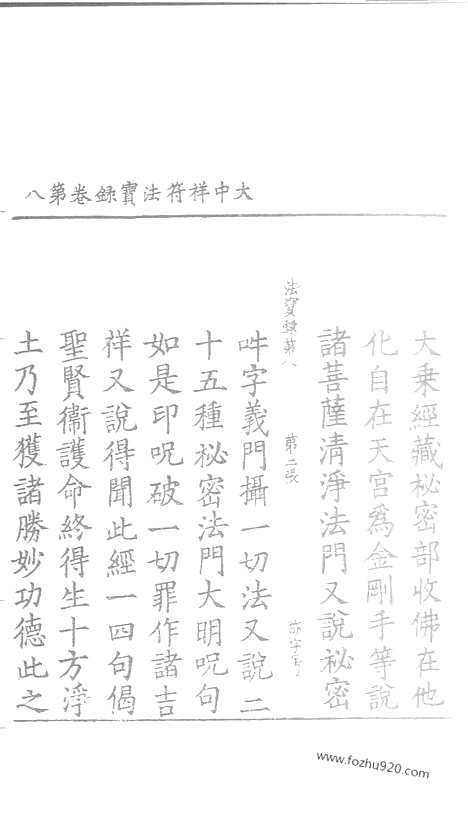 大中祥符法寶錄卷第八
大乗經藏秘密部收佛在他
化自在天宮爲金剛手等說
諸菩薩清淨法門又說祕密
法寶録第八 第二張
吽字義門攝一切法又說二
十五種祕密法門大明呪句
如是印呪破一切罪作諸吉
祥又說得聞此經一四句偈
聖賢衞護命終得生十方淨
土乃至獲諸勝妙功德此之
www.fozhu920.com